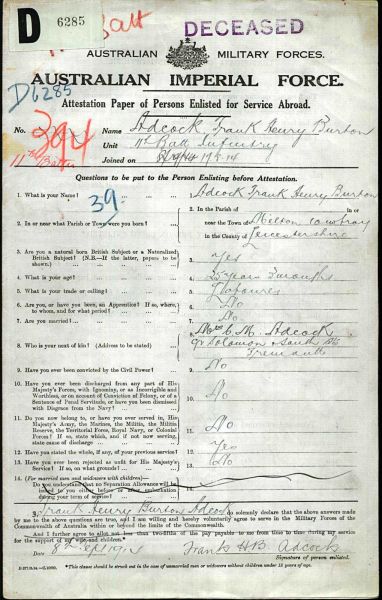 D 6285
DECEASED
Batt
AUSTRALIAN MILITARY FORCES.
AUSTRALIAN IMPERIAL FORCE.
D6285
Attestation Paper of Persons Enlisted for Service Abroad.
No. 394 Name Adcock Frank Henry Burton
11th Batt Unit 11th Batt Infantry
Joined on 17.8.14
Questions to be put to the Person Enlisting before Attestation.
1. What is your Name? 39 1. Adcock Frank Henry Burton
2. In or near what Parish or Town were you born? 2. In the Parish of in or
near the Town of Melton Mowbray
in the County of Leicestershire
3. Are you a natural born British Subject or a Naturalized
British Subject? (N.B.—If the latter, papers to be
shown.) 3. Yes
4. What is your age? 4. 25 years
5. What is your trade or calling? 5.
6. Are you, or have you been, an Apprentice? If so, where,
to whom, and for what period? 6. No
7. Are you married? 7. No
8. Who is your next of kin? (Address to be stated) 8. Mrs C. M. Adcock
Solomon & South Sts
Fremantle
9. Have you ever been convicted by the Civil Power? 9. No
10. Have you ever been discharged from any part of His
Majesty's Forces, with Ignominy, or as Incorrigible
and Worthless, or on account of Conviction of Felony, or of a
Sentence of Penal Servitude, or have you been dismissed
with Disgrace from the Navy? 10. No
11. Do you now belong to, or have you ever served in, His
Majesty's Army, the Marines, the Militia, the Militia
Reserve, the Territorial Force, Royal Navy, or Colonial
Forces? If so, state which, and if not now serving,
state cause of discharge 11. No
12. Have you stated the whole, if any, of your previous service? 12. Yes
13. Have you ever been rejected as unfit for His Majesty's
Service? If so, on what grounds? 13. No
14. (For married men and widowers with children)—
Do you understand that no Separation Allowance will be
issued to you either before or after embarkation
during your term of service? 14.
I, Frank Henry Burton Adcock do solemnly declare that the above answers made
by me to the above questions are true, and I am willing and hereby voluntarily agree to serve in the Military Forces of the
Commonwealth of Australia within or beyond the limits of the Commonwealth.
And I further agree to allot not less than two-fifths of the pay payable to me from time to time during my service
for the support of my wife and children.
Date 8th Sept 1914 Frank H.B. Adcock
Signature of person enlisted.
*This clause should be struck out in the case of unmarried men or widowers without children under 18 years of age.